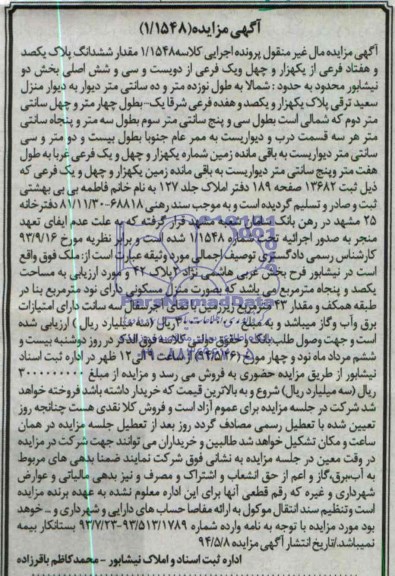 آگهی مزایده(۱/۱۵۴۸)
آگهی مزایده مال غیر منقول پرونده اجرایی کلاسه۱/۱۵۴۸ مقدار ششدانگ پلاک یکصد
و هفتاد فرعی از یکهزار و چهل ویک فرعی از دویست و سی و شش اصلی بخش دو
نیشابور محدود به حدود : شمالا به طول نوزده متر و ده سانتی متر دیوار به دیوار منزل
سعید ترقی پلاک یکهزار و یکصد و هفده فرعی شرقا یک-بطول چهار متر و چهل سانتی
متر دوم که شمالی است بطول سی و پنج سانتی متر سوم بطول سه متر و پنجاه سانتی
متر هر سه قسمت درب و دیواریست به ممر عام جنوبا بطول بیست و دو متر و سی
سانتی متر دیواریست به باقی مانده زمین شماره یکهزار و چهل و یک فرعی غربا به طول
هفت متر وپنج سانتی متر دیواریست به باقی مانده زمین یکهزار و چهل و یک فرعی که
ذیل ثبت ۱۳۶۸۲ صفحه ۱۸۹ دفتر املاک جلد ۱۲۷ به نام خانم فاطمه بی بی بهشتی
ثبت و صادر و تسلیم گردیده است و به موجب سند رهنی ۶۸۸۱۸-۸۱/۱۱/۳۰ دفترخانه
۲۵ مشهد در رهن بانک شعبه مشهد قرار گرفته که به علت عدم ایفای تعهد
منجر به صدور اجرائیه تحت شماره ۱/۱۵۴۸ شده است و برابر نظریه مورخ ۹۳/۹/۱۶
کارشناس رسمی دادگستری توصیف اجمالی مورد وثیقه عبارت است از: ملک فوق واقع
است در نیشابور فرح بخش غربی هاشمی نژاد ۳ پلاک ۴۲ و مورد ارزیابی به مساحت
یکصد و پنجاه مترمربع می باشد که بصورت منزل مسکونی دارای نود مترمربع بنا در
طبقه همکف و مقدار ۴۳ مترمربع زیرزمین دارای سانت دارای امتیازات
برق وآب وگاز میباشد و به مبلغ ریال (سه میلیارد ریال) ارزیابی شده
است و جهت وصول طلب بانک و حقوق دولتی کلاسه فوق الذکر در روز دوشنبه بیست و
ششم مرداد ماه نود و چهار مورخ (۹۴/۵/۲۶) از ساعت ۹ الی ۱۲ ظهر در اداره ثبت اسناد
نیشابور از طریق مزایده حضوری به فروش می رسد و مزایده از مبلغ ۳۰۰۰۰۰۰۰۰۰
ریال (سه میلیارد ریال) شروع و به بالاترین قیمت که خریدار داشته باشد فروخته خواهد
شد شرکت در جلسه مزایده برای عموم آزاد است و فروش کلا نقدی هست چنانچه روز
تعیین شده با تعطیل رسمی مصادف گردد روز بعد از تعطیل جلسه مزایده در همان
ساعت و مکان تشکیل خواهد شد طالبین و خریداران می توانند جهت شرکت در مزایده
در وقت معین در جلسه مزایده به نشانی فوق شرکت نمایند ضمنا بدهی های مربوط
به آب،برق،گاز و اعم از حق انشعاب و اشتراک و مصرف و نیز بدهی مالیاتی و عوارض
شهرداری و غیره که رقم قطعی آنها برای این اداره معلوم نشده به عهده برنده مزایده
است وتنظیم سند انتقال موکول به ارائه مفاصا حساب های دارایی و شهرداری و ... خواهد
بود مورد مزایده با توجه به نامه وارده شماره ۹۳/۵۱۳/۱۷۸۹-۹۳/۷/۲۳ بستانکار بیمه
نمیباشد/تاریخ انتشار آگهی مزایده ۹۴/۵/۸
اداره ثبت اسناد و املاک نیشابور - محمدکاظم باقرزاده